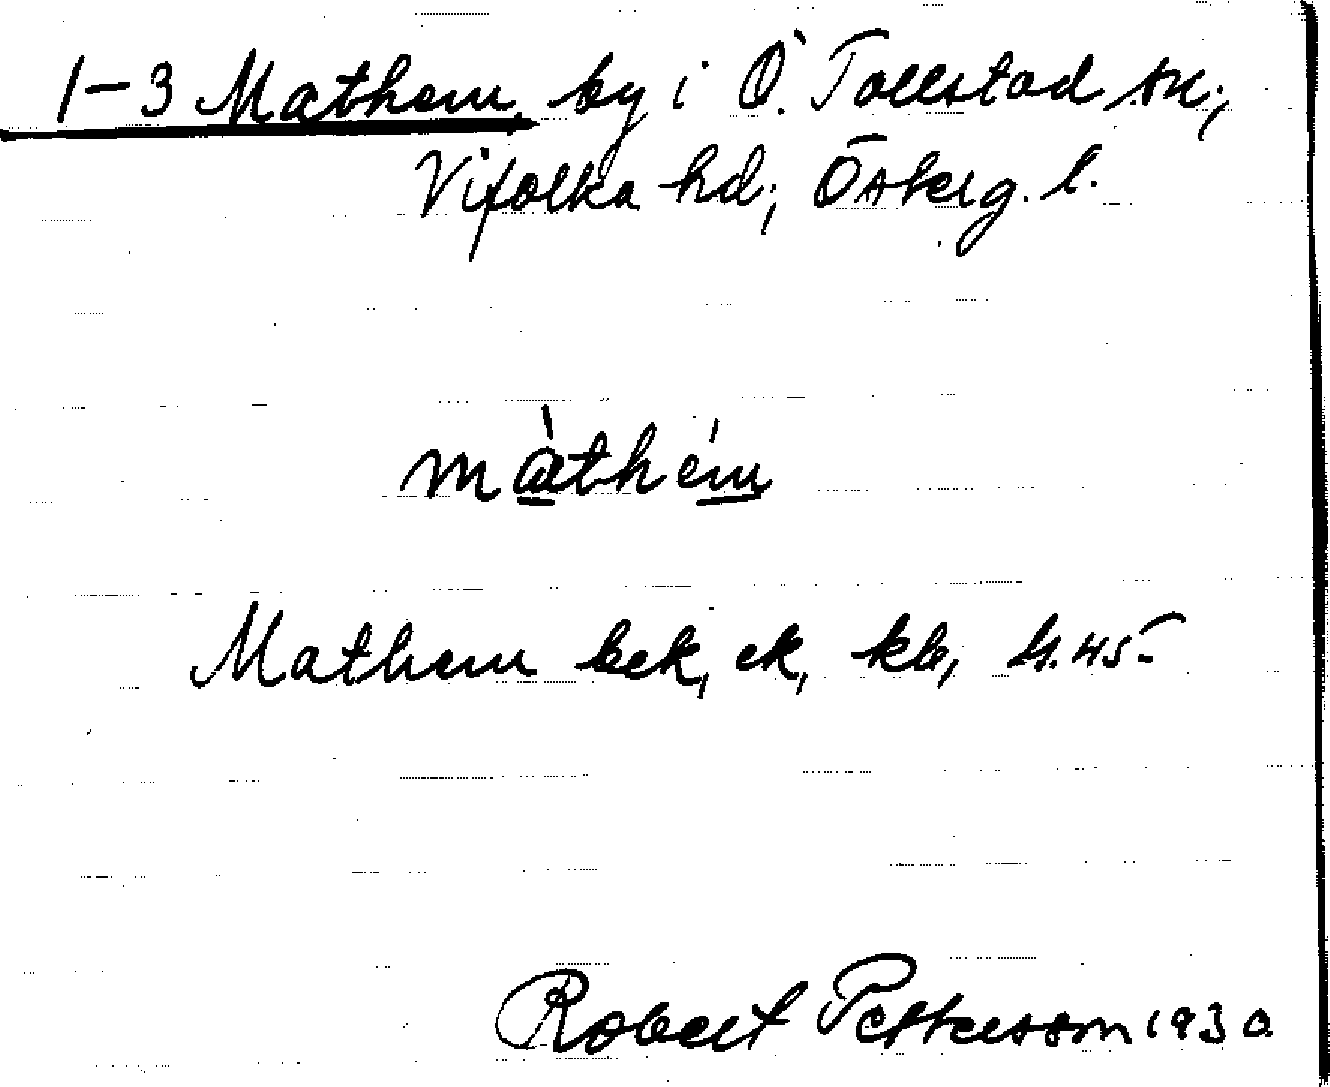 1-3 Mathem, by i Ö. Tollstad sn;
Vifolka hd; Österg. l.
màthém
Mathem bek, ek, kb, H. 45
Robert Petterson 1930